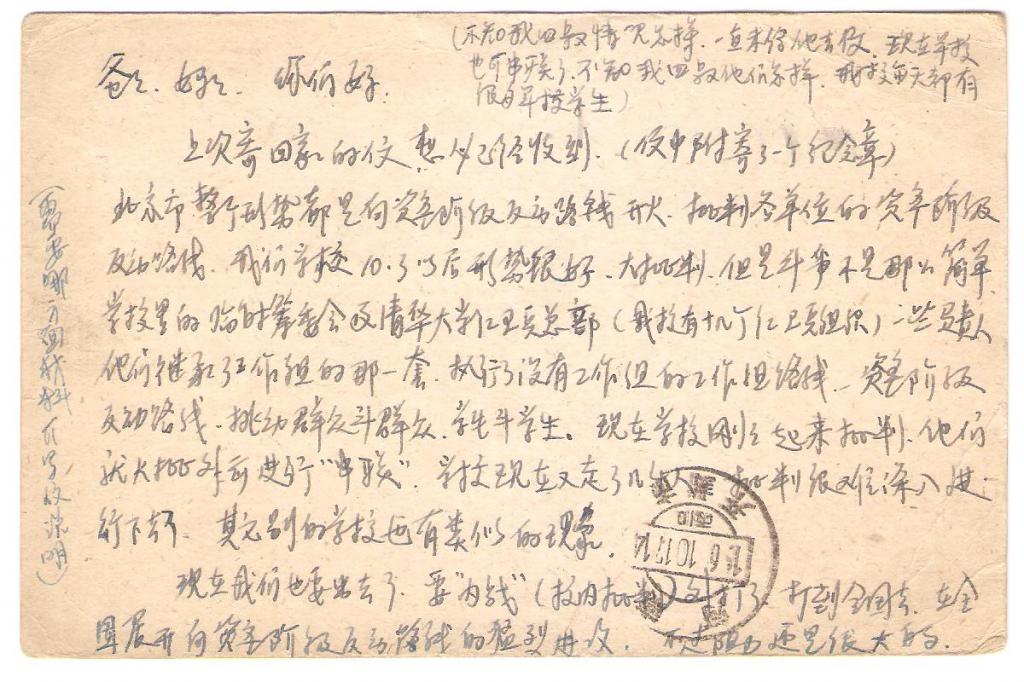 (不知我四叔情况怎样.一直未给他去信.现在军校
也可串联了不知我四叔他们怎样.我校每天都有
很多军校学生)
爸爸.妈妈.你们好.
上次寄回家的信想必已经收到.(信中附寄了一个纪念章)
北京市整个形势都是向资产阶级反动路线开火.批判各单位的资产阶级
反动路线.我们学校10.3以后形势很好.大批判.但是斗争不是那么简单
学校里的临时筹委会及清华大学红卫兵总部(我校有十几个红卫兵组织)一些负责人
他们继承了工作组的那一套.执行了没有工作组的工作组路线—资产阶级
反动路线.挑动群众斗群众.学生斗学生。现在学校刚刚起来批判.他们
就大批外出进行"串联".学校现在又走了几千人 批判很难深入进
行下去.其它别的学校也有类似的现象.
现在我们也要出去了.要"内战"(校内批判) 打到全国去.在全
国展开向资产阶级反动路线的猛烈进攻.不过阻力还是很大的.
(要要哪方面材料可写信说明)
1966.10.17.14